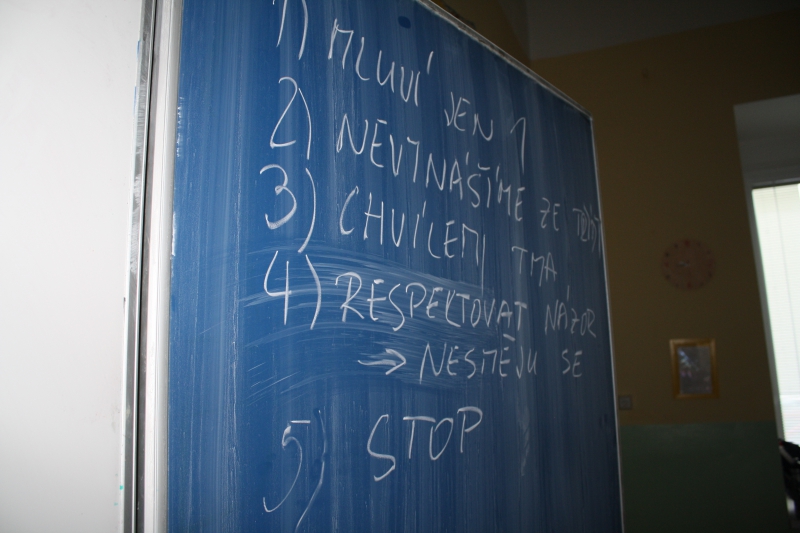 1) MLUVÍ JEN 1
2) NEVYNÁŠÍME ZE TŘÍDY
3) CHVÍLEMI TMA
4) RESPEKTOVAT NÁZOR
→ NESMĚJU SE
5) STOP